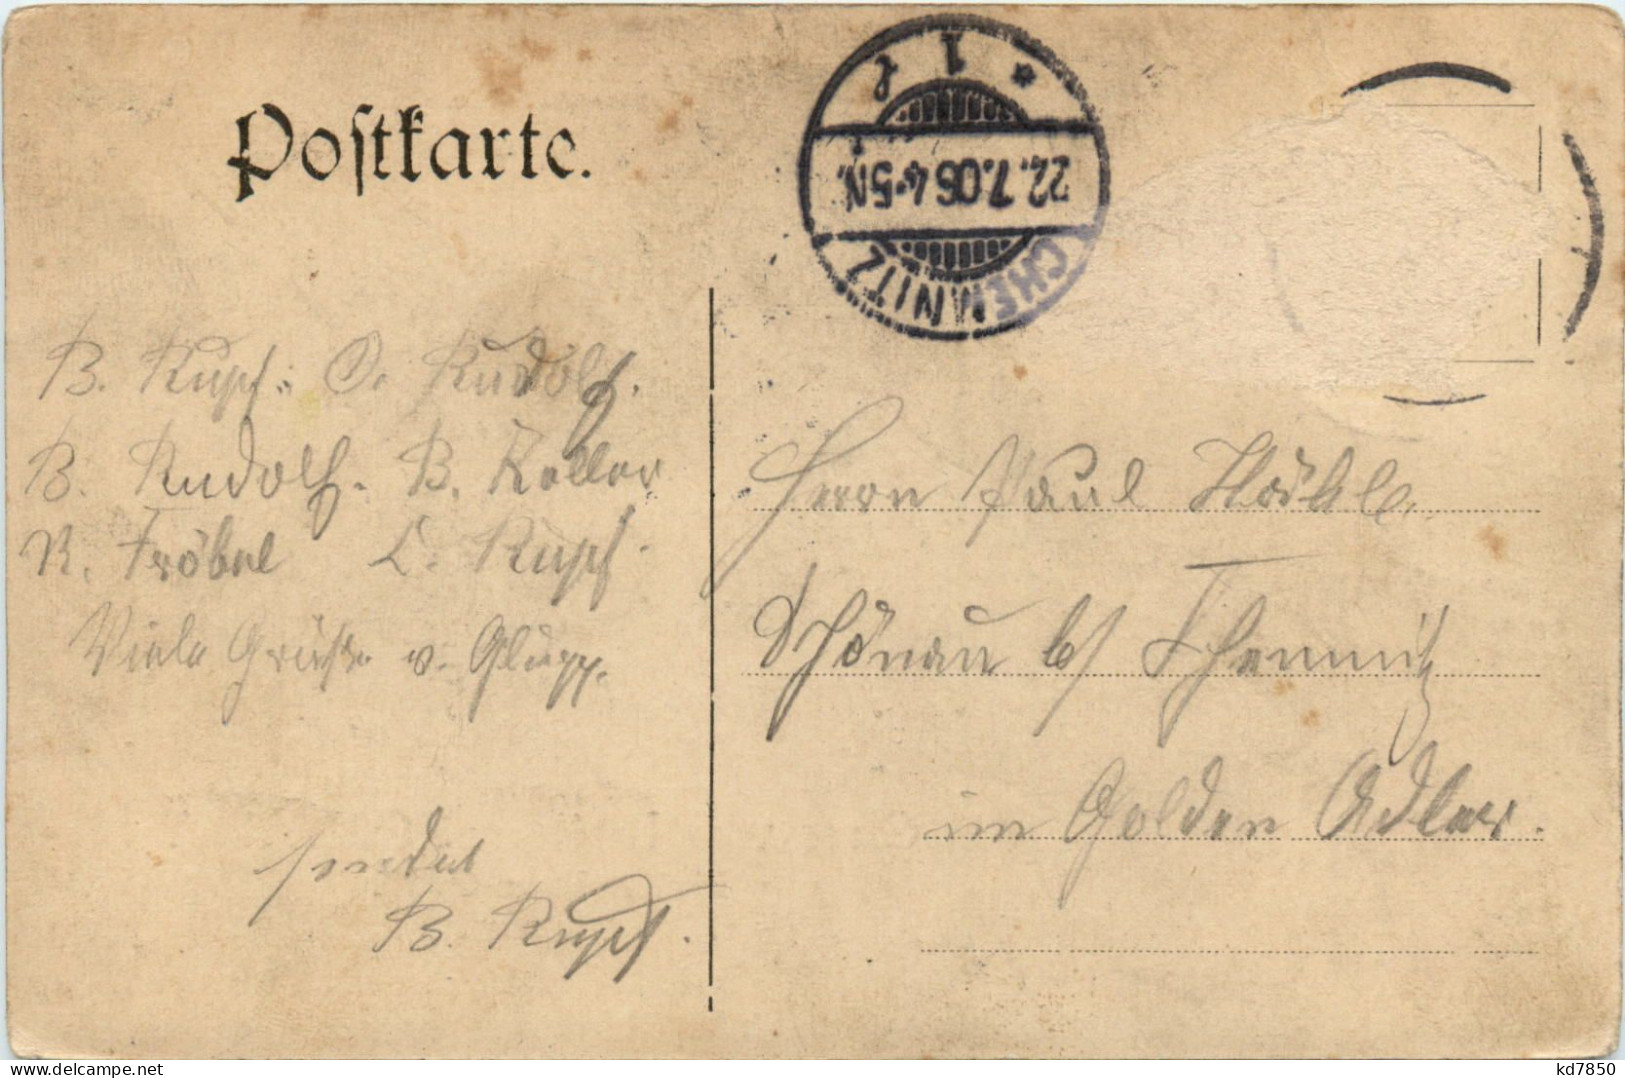 Postkarte.
CHEMNITZ
22.7.06 4-5N.
* 1 f
B. Rupf. O. Rudolf.
B. Rudolf. B. Keller
R. Fröbel L. Rupf.
Viele Grüße v.
sendet
B. Rupf.
Herrn Paul
Schönau b/ Chemnitz
im Golden Adler.
kd7850